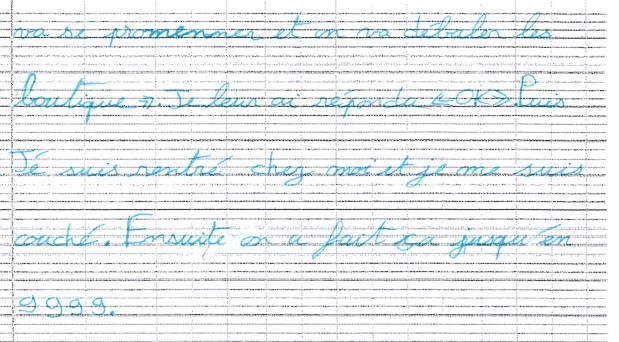 va se promenner et on va débaler les
boutique ». Je leur ai répondu « OK ». Puis
Jé suis rentré chez moi et je me suis
couché. Ensuite on a fact ça jusqu'en
9999.